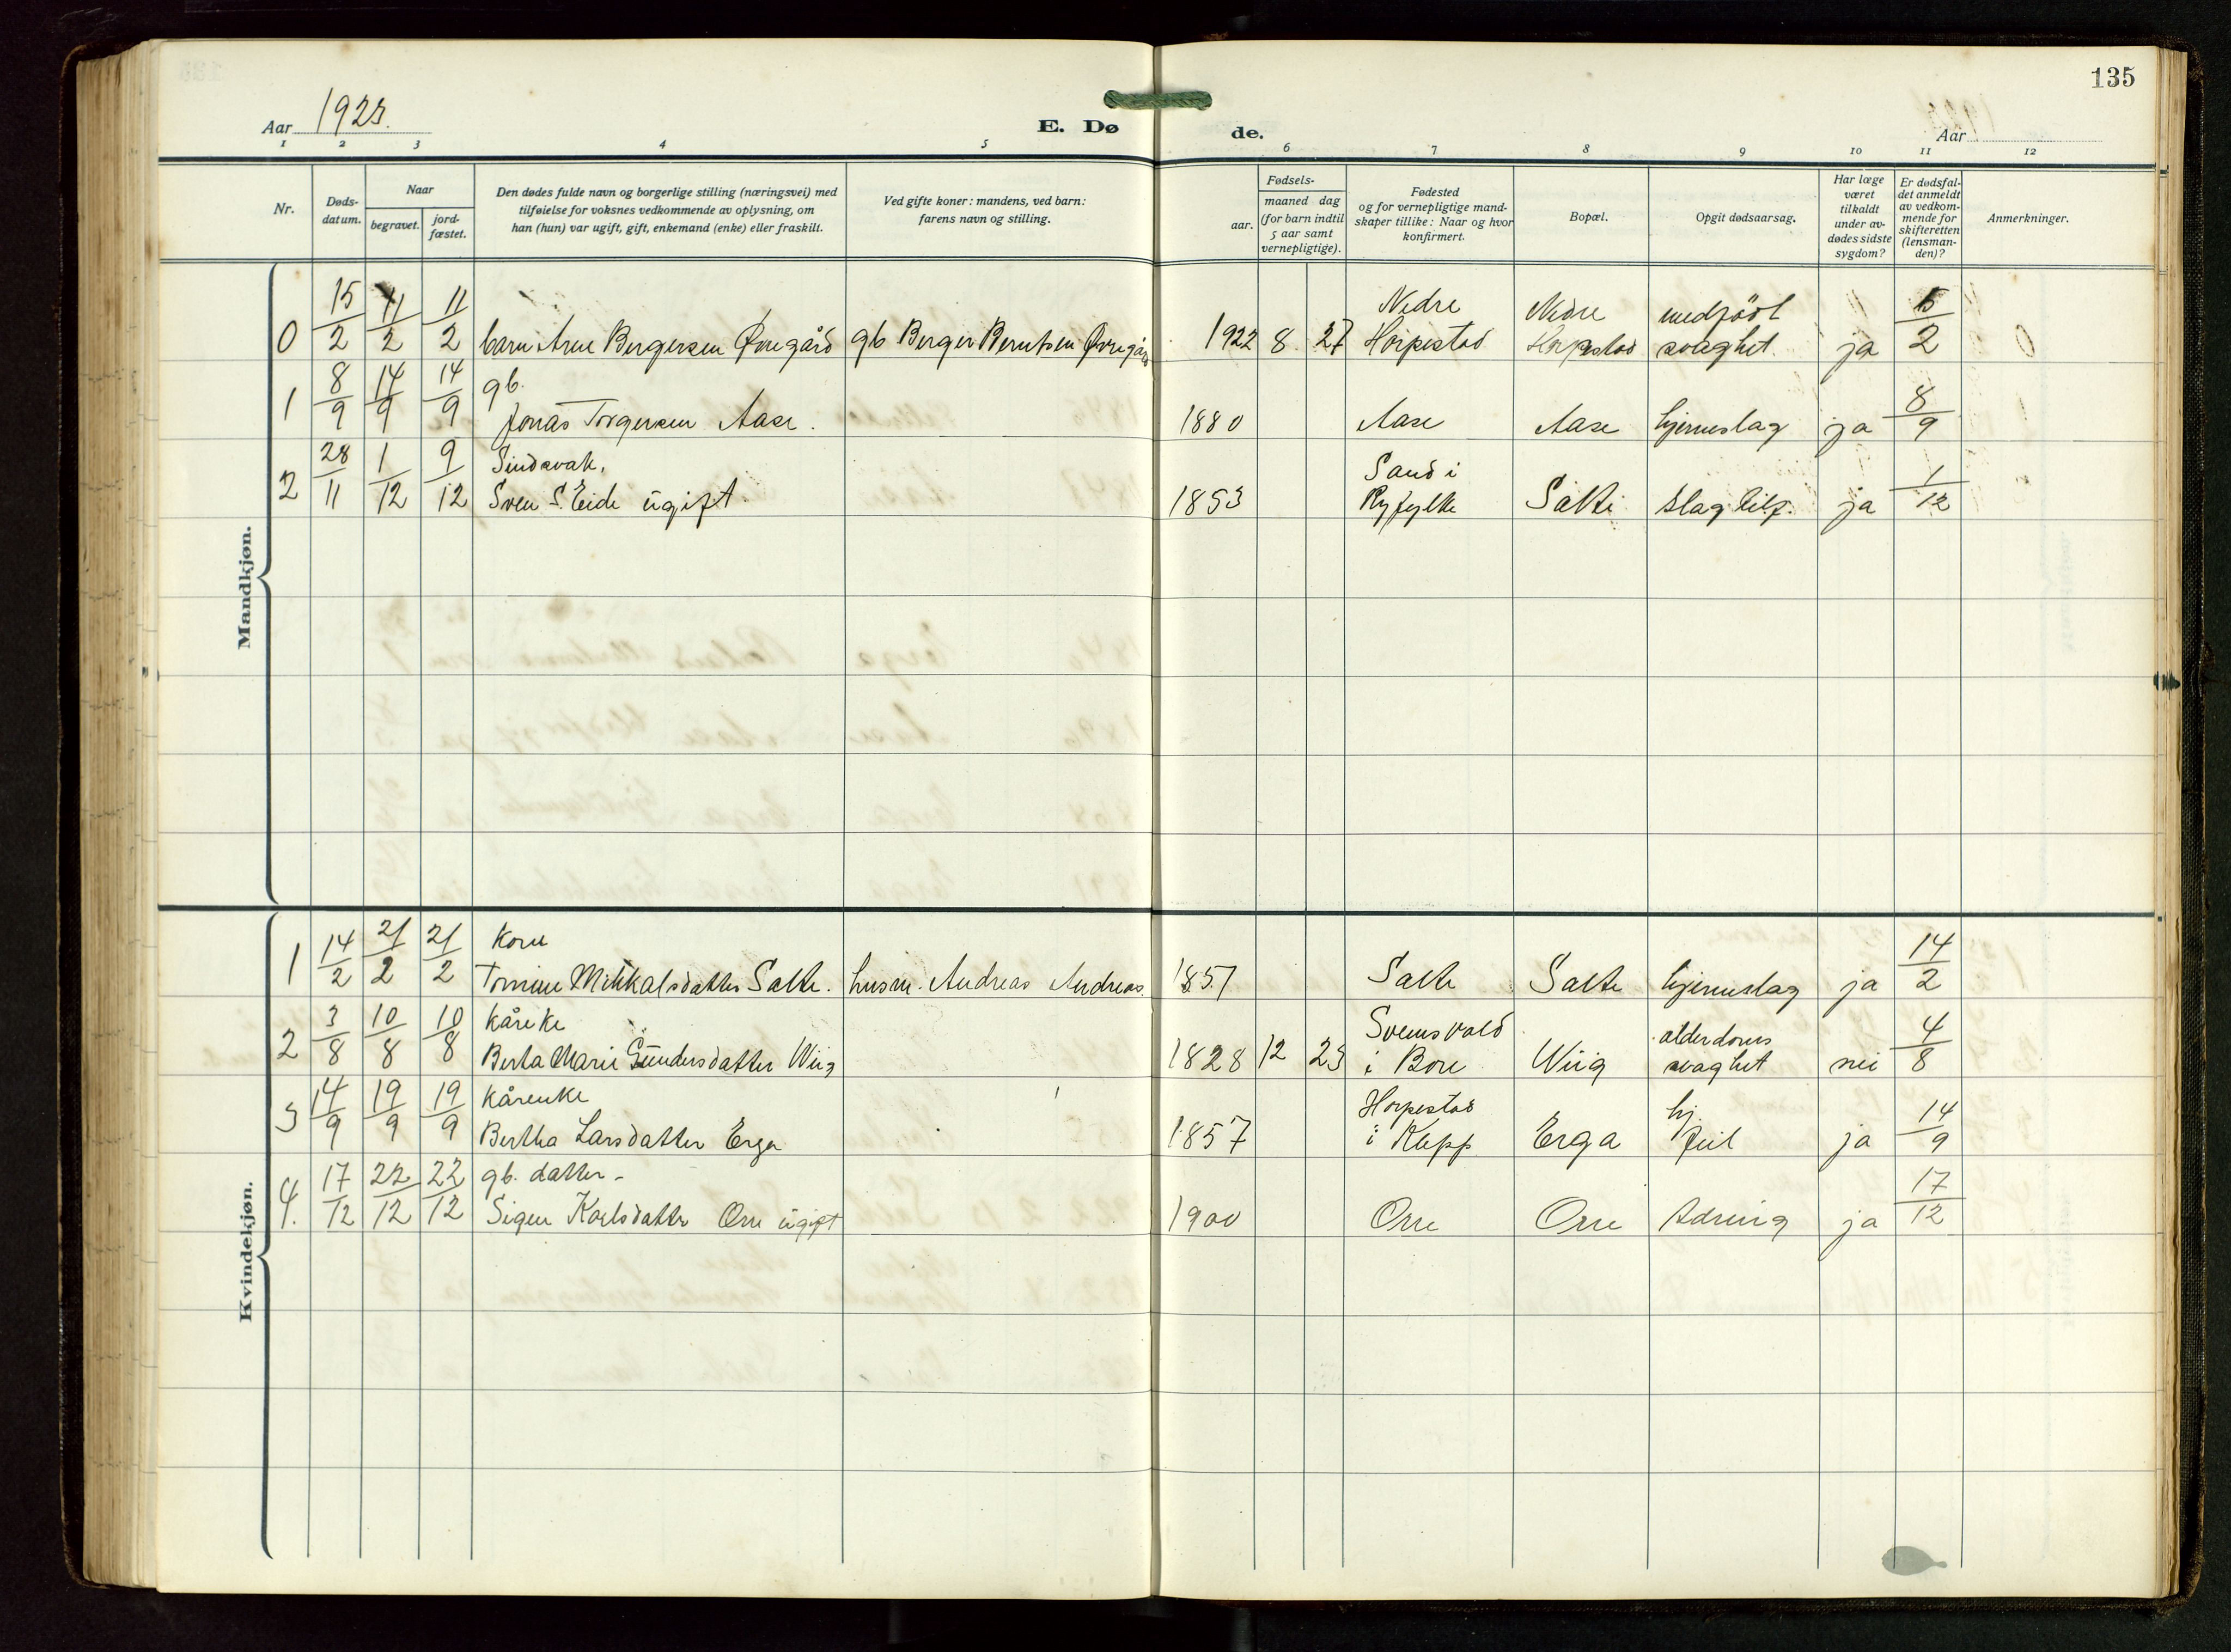 135
Aar 1923.
E. Dø de.
Aar
1 2 3 4 5 6 7 8 9 10 11 12
Nr.
Døds-
datum.
Naar
begravet.
jord-
fæstet.
Den dødes fulde navn og borgerlige stilling (næringsvei) med
tilføielse for voksnes vedkommende av oplysning, om
han (hun) var ugift, gift, enkemand (enke) eller fraskilt.
Ved gifte koner: mandens, ved barn:
farens navn og stilling.
Fødsels-
aar.
maaned dag
(for barn indtil
5 aar samt
vernepligtige).
Fødested
og for vernepligtige mand-
skaper tillike: Naar og hvor
konfirmert.
Bopæl.
Opgit dødsaarsag.
Har læge
været
tilkaldt
under av-
dødes sidste
sygdom?
Er dødsfal-
det anmeldt
av vedkom-
mende for
skifteretten
(lensman-
den)?
Anmerkninger.
Mandkjøn.
15 11 11 Nedre Nedre medfödt 15
0 2 2 2 barn Arne Bergersen Øvregård gb Berger Berntsen Øvregård 1922 8 27 Horpestad Horpestad svaghet. ja 2 0
8 14 14 gb. 8
1 9 9 9 Jonas Torgersen Aase. 1880 Aase Aase hjerneslag ja 9
28 1 9 Sindsvak. Sand i 1
2 11 12 12 Sven S. Eide ugift. 1853 Ryfylke Salte slagtilf. ja 12
Kvindekjøn.
14 21 21 Kone 14
1 2 2 2 Tomine Mikkalsdatter Salte. husm. Andreas Andreas. 1857 Salte Salte hjerneslag ja 2
3 10 10 kåreke Svensvold alderdoms 4
2 8 8 8 Berta Marie Gundersdatter Wiig 1828 12 23 i Bore Wiig svaghet nei 8
14 19 19 kårenke Horpestad hj. 14
3 9 9 9 Bertha Larsdatter Erga 1857 i Klepp Erga feil ja 9
17 22 22 gb. datter- 17
4. 12 12 12 Karlsdatter Orre ugift 1900 Orre Orre tæring ja 12